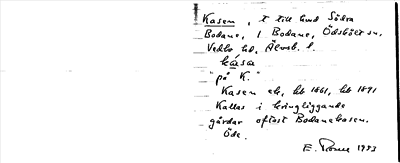 Kasen, t till hmd Södra
Bodane, 1 Bodane, Ödsbölt sn.
Vedbo hd, Älvsb. l.
kása
"på K."
Kasen ek, hb 1861, hb 1891
Kallas i kringliggande
gårdar oftast Bodanekasen.
Öde.
E. 1993